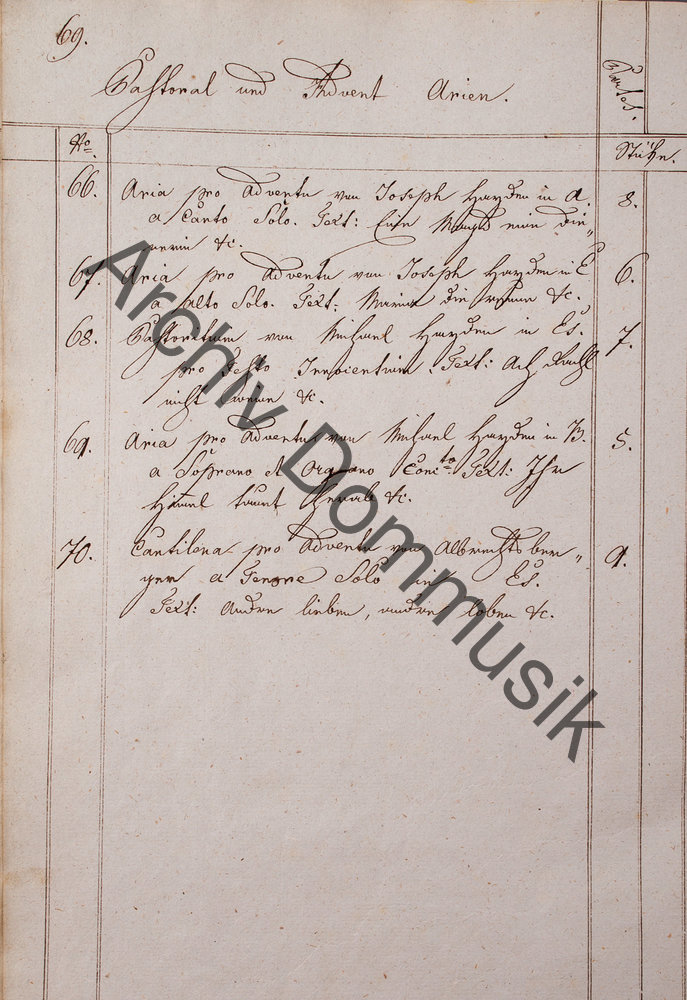 69.
Pastoral und Advent Arien.
Partes.
No.
Stücke.
66. Aria pro Adventu von Joseph Hayden in A. 8.
a Canto Solo. Text: Eine Magd eine Die„
nerin &c.
67. Aria pro Adventu von Joseph Hayden in E 6.
a Alto Solo. Text: Maria die reine &c.
68. Pastoritium von Michael Hayden in Es. 7.
pro Festo Innocentium. Text: Ach Rachl
nicht weine &c.
69. Aria pro Adventus von Michael Hayden in B. 5.
a Soprano et Organo Concto Text: Ihr
Himmel tauet herab &c.
70. Cantilena pro Adventu von Albrechtsber„ 9.
ger a Tenore Solo in Es.
Text: Andre lieben, andre loben &c.
Archiv Dommusik